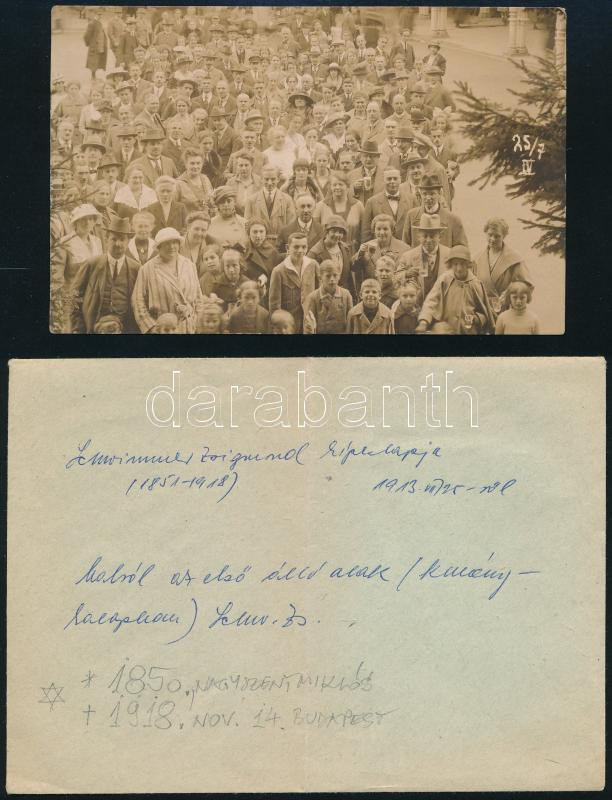 25/7
IV
darabanth
Schwimmer Zsigmond képeslapja
(1851-1918) 1913. VII/25-ről
balról az első álló alak (kemény-
kalapban) Schw. Zs.
* 1850., NAGYSZENTMIKLÓS
† 1918. NOV. 14. BUDAPEST